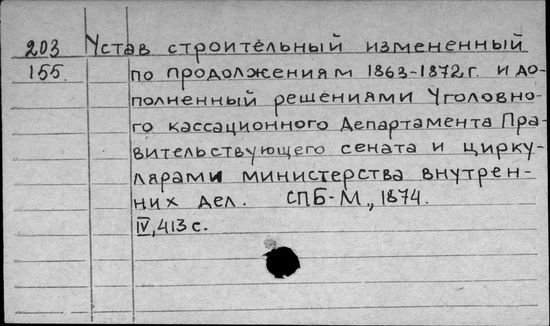 203 Устав строительный измененный
155. по продолжениям 1863-1872 г. и до-
полненный решениями Уголовно-
го кассационного Департамента Пра-
вительствующего сената и цирку-
лярами министерства внутрен-
них дел. СПБ-М., 1874.
IV, 413 с.